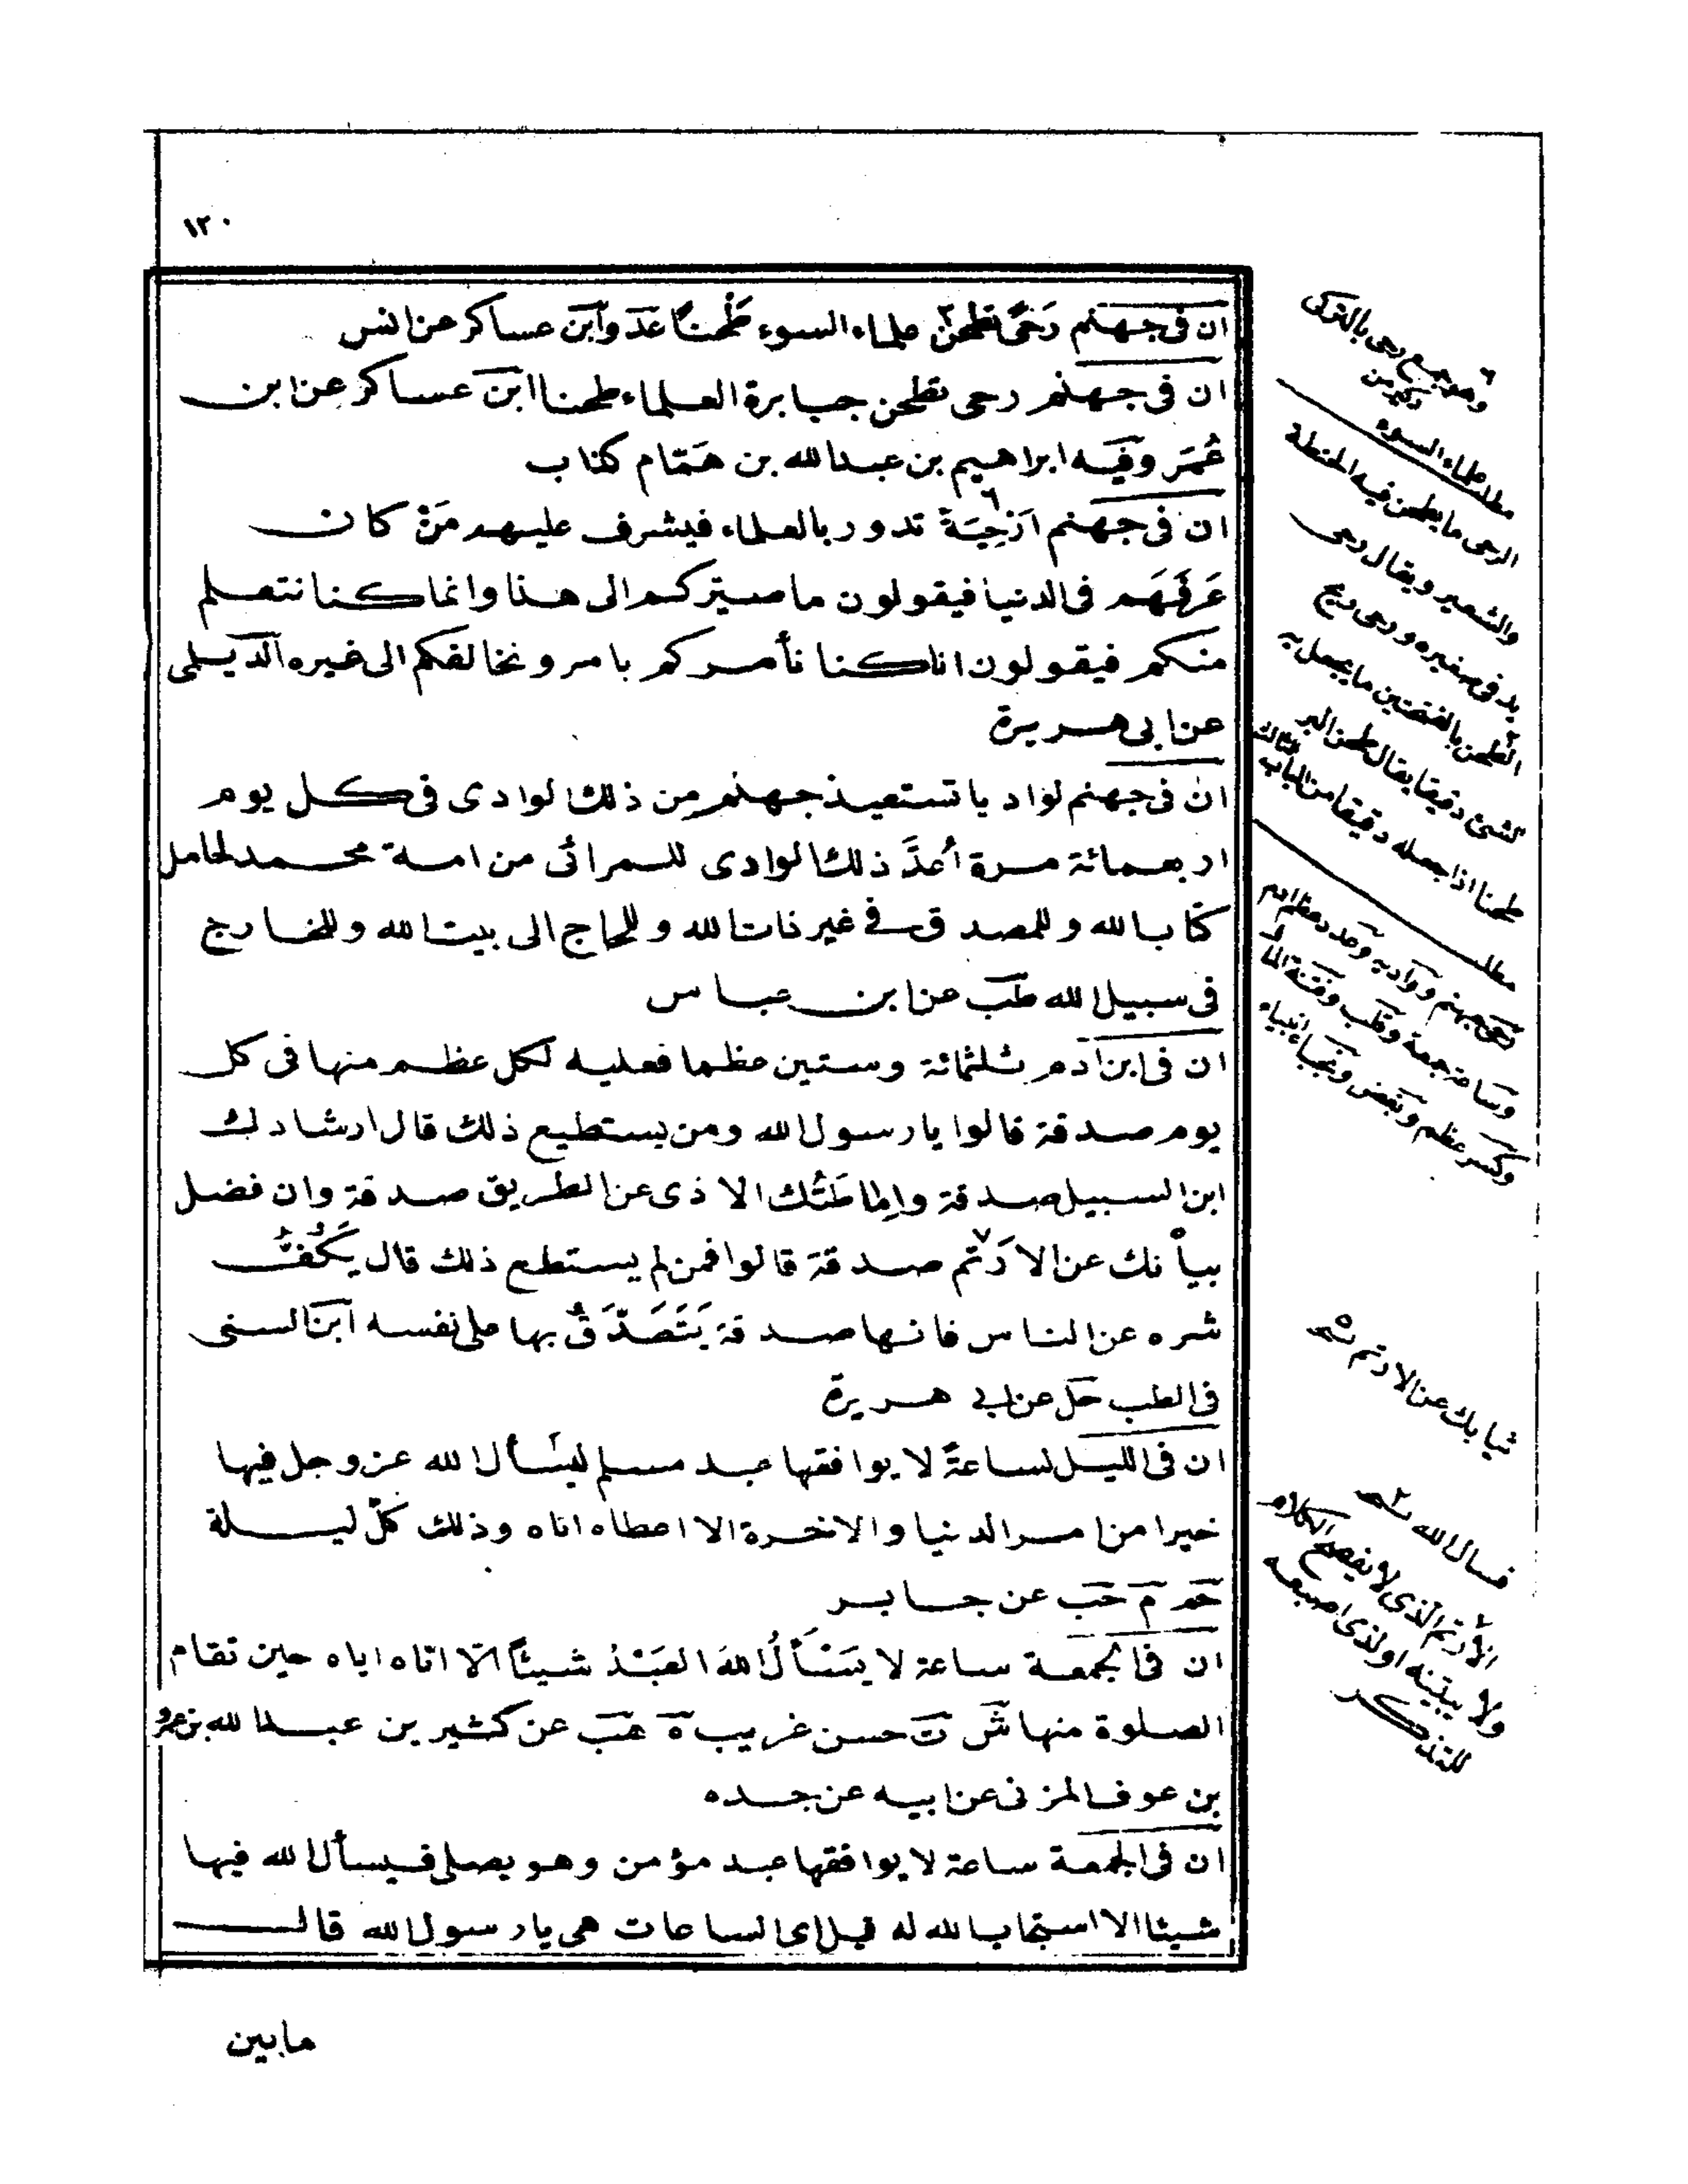 ١٢٠
ان فى جهنم رَحًى تطحن علماء السوء طَحْنًا عَد وابن عساكر عن انس
ان فى جهنم رحى تطحن جبابرة العلماء طحنا ابن عساكر عن ابن
عُمَر وفيه ابراهيم بن عبدالله بن هَمّام كذاب
ان فى جهنم اَرْحِيَةً تدور بالعلماء فيشرف عليهم مَنْ كان
عَرَفَهَم فى الدنيا فيقولون ما صيّركم الى هذا وانما كنا نتعلم
منكم فيقولون انا كنا نأمركم بامر ونخالفكم الى غيره الديلمى
عن ابى هريرة
ان فى جهنم لواديا تستعيذ جهنم من ذلك الوادى فى كل يوم
اربعمائة مرة أُعدَّ ذلك الوادى للمرائى من امة محمد لحامل
كتاب الله وللمصدق فى غير ذات الله وللحاج الى بيت الله وللخارج
فى سبيل الله طب عن ابن عباس
ان فى ابن آدم ثلثمائة وستين عظما فعليه لكل عظم منها فى كل
يوم صدقة قالوا يا رسول الله ومن يستطيع ذلك قال ارشادك
ابن السبيل صدقة واِماطَتُك الاذى عن الطريق صدقة وان فضل
بيانك عن الارْتم صدقة قالوا فمن لم يستطع ذلك قال يَكُفُّ
شره عن الناس فانها صدقة يَتَصَدَّقُ بها على نفسه ابن السنى
فى الطب حل عن ابى هريرة
ان فى الليل لساعةً لا يوافقها عبد مسلم ليسأل الله عز وجل فيها
خيرا من امر الدنيا والاخرة الا اعطاه اياه وذلك كلّ ليلة
حم م حب عن جابر
ان فى الجمعة ساعة لا يَسْأَلُ اللهَ العَبْدُ شيئاً الّا اتاه اياه حين تقام
الصلوة منها ش ت حسن غريب ه عب عن كثير بن عبدالله بن عمرو
بن عوف المزنى عن ابيه عن جده
ان فى الجمعة ساعة لا يوافقها عبد مؤمن وهو يصلى فيسأل الله فيها
شيئا الا استجاب الله له قيل اى الساعات هى يا رسول الله قال
مابين
وهو جمع رحى بالتركى
دكرمن
مطلب علماء السوء
الرحى ما يطحن فيه الحنطة
والشعير ويقال رحى
يد فى صغيره ورحى ريح
الطحن بالفتحتين ما يجعل به
لشئ دقيقا يقال طحن البر
طحنا اذا جعله دقيقا من الباب الثالث
مطلب
رحى جهنم وواديه وعدد عظم ادم
وساعة جمعة
وكسر عظم وبغض ونجباء انبياء
ثيابك عن الارتم نسخه
فسال الله نسخه
الارتم الذى لا يفصح الكلام
ولا يبيّنه او لذى اصبعه
للتذكر